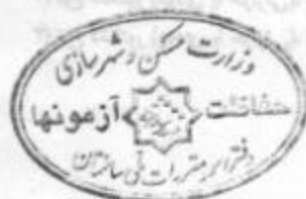 وزارت مسکن و شهرسازی
حفاظت آزمونها
دفتر امور مقررات ملی ساختمان